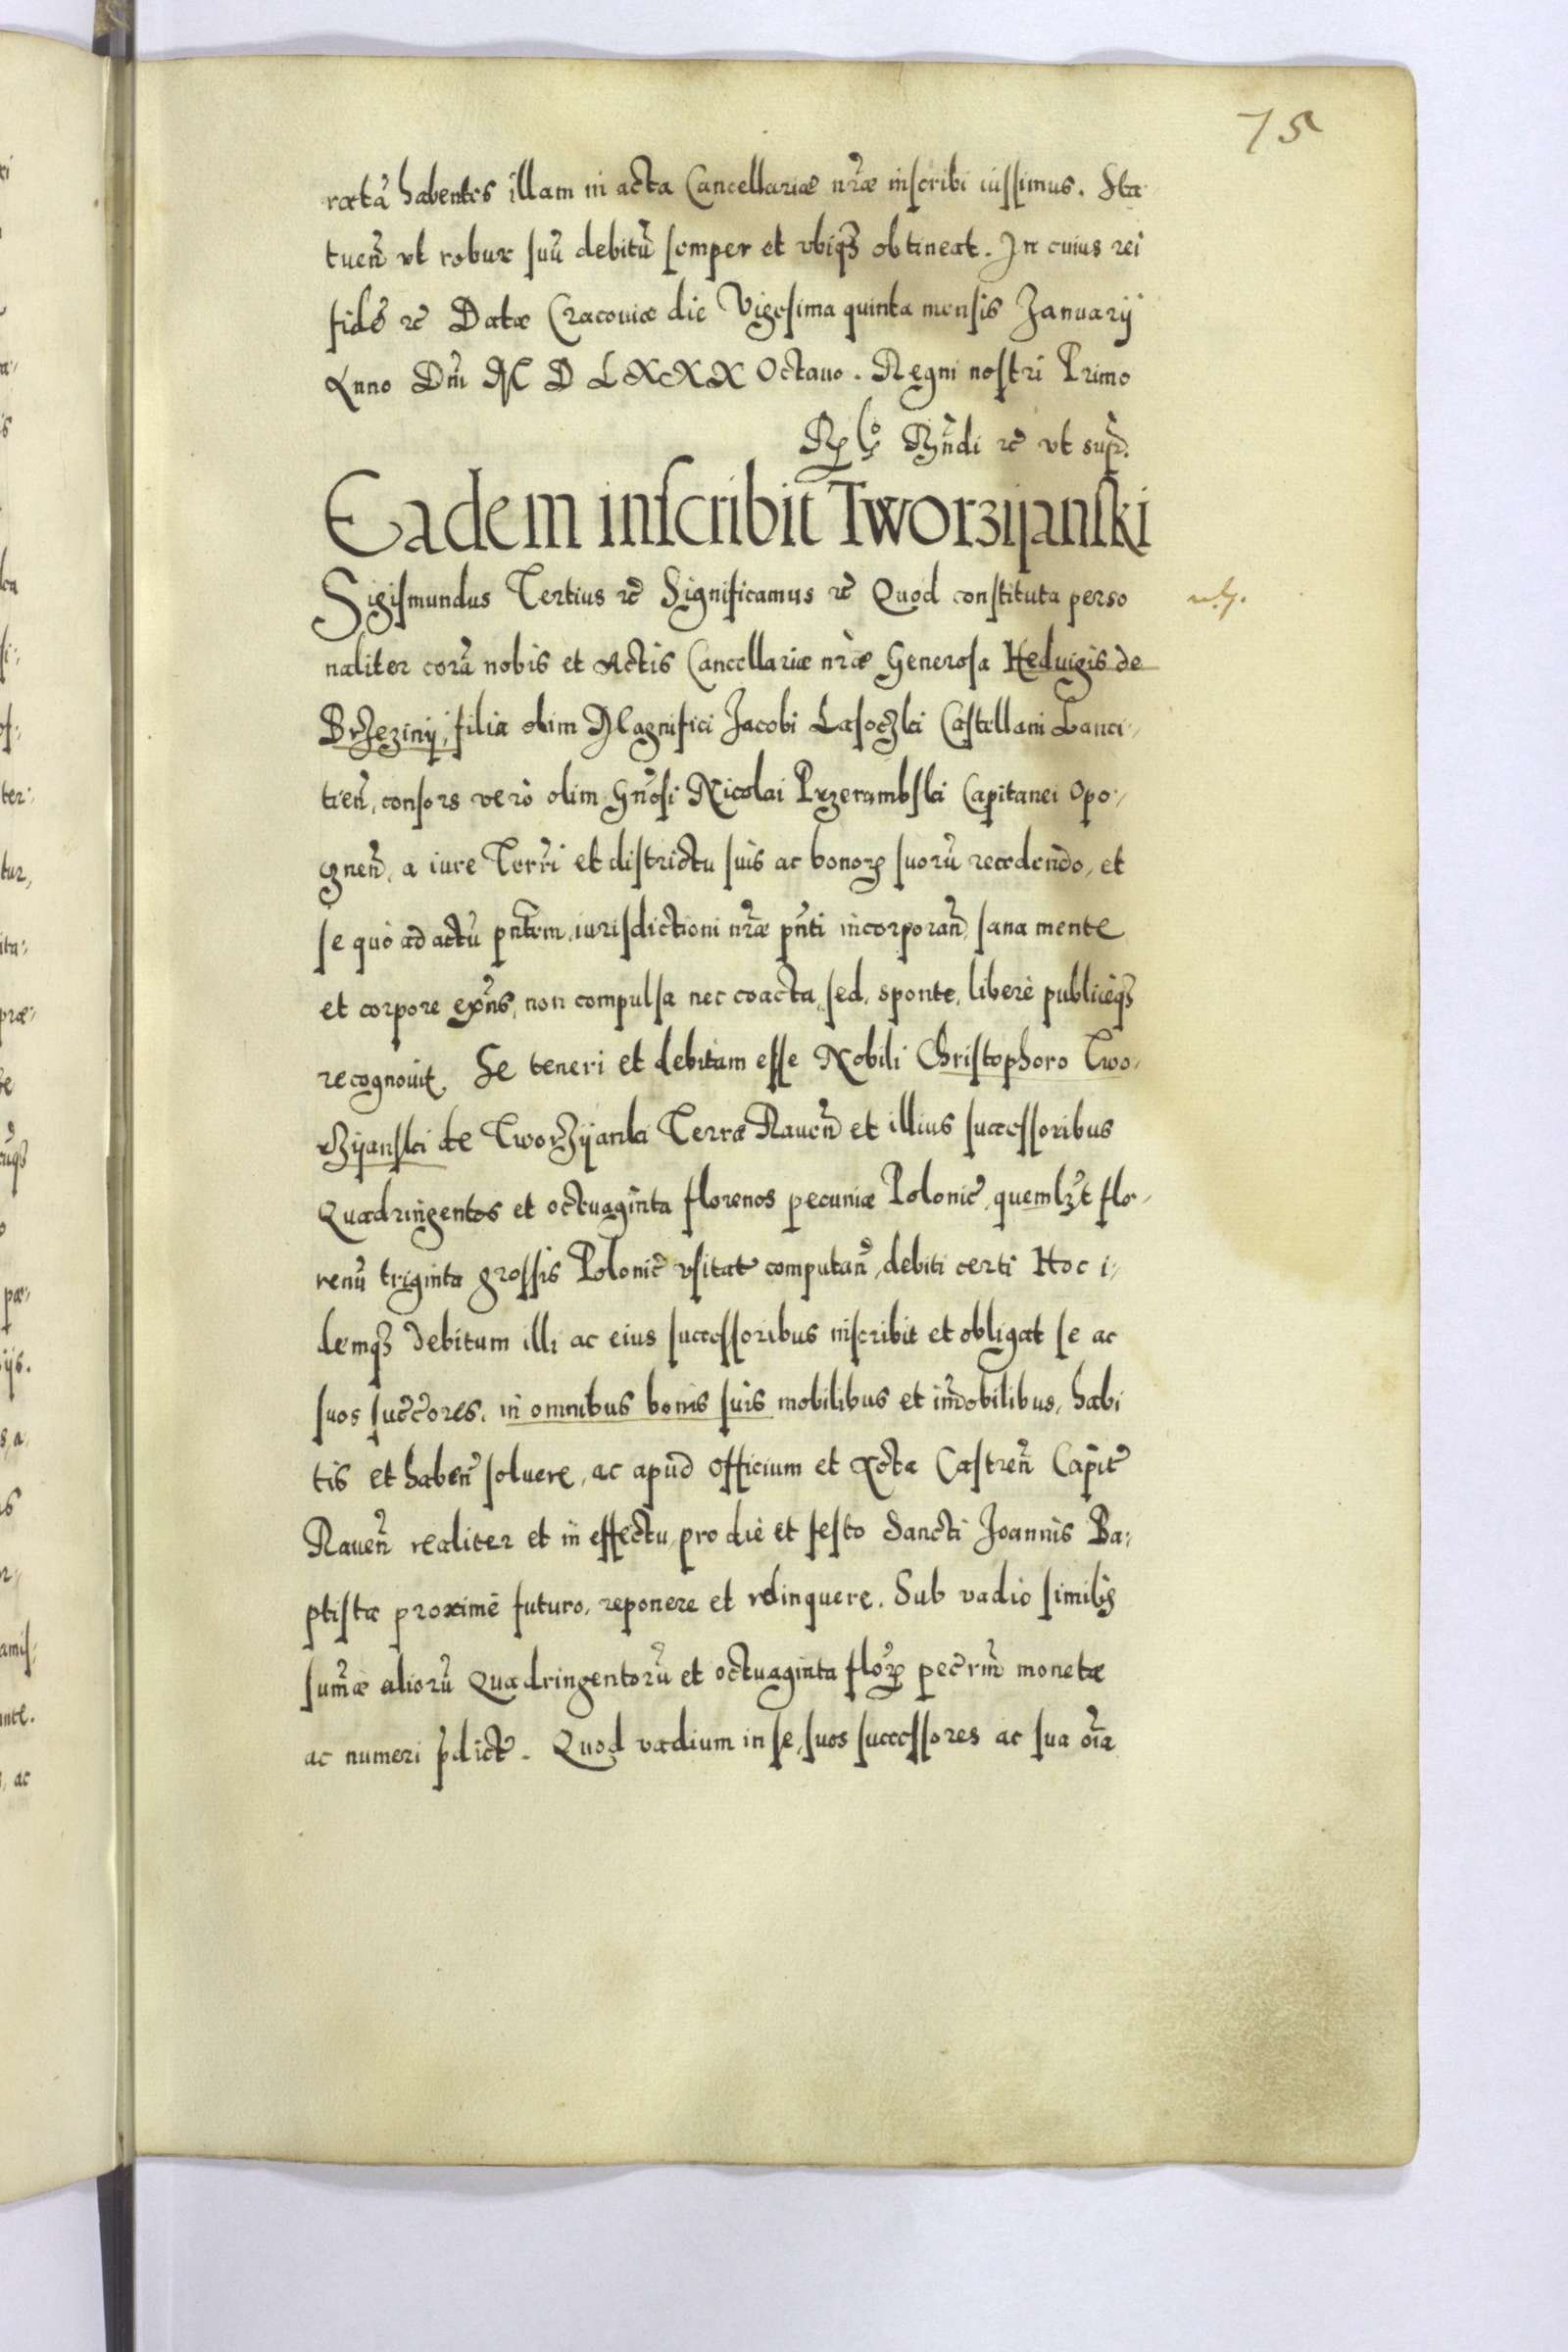 75
ratã habentes illam in acta Cancellariæ nr̃æ inscribi iussimus. Sta
tuen̄ ut robur suũ debitũ semper et ubiq₃ obtineat. In cuius rei
fidẽ rc̃ Datæ Cracouiæ die Vigesima quinta mensis Januarij
Anno Dm̃ M D LXXX Octauo. Regni nostri Primo
Rñdi rc̃ ut supr̃.
Eadem inscribit Tworzijanski
Sigismundus Tertius rc̃ Significamus rc̃ Quod constituta perso
naliter corã nobis et Actis Cancellariæ nr̃æ Generosa Heduigis de
Brzeziny, filia olim Magnifici Jacobi Lasoczki Castellani Lanci-
tien̄, consors verò olim Gnõsi Nicolai Przerambski Capitanei Opo-
cznen̄, a iure Terrĩ et districtu suis ac bonoꝝ suorũ recedendo, et
se quò ad actũ pñtem iurisdictioni nr̃æ pñti incorporan̄, sana mente
et corpore exñs, non compulsa nec coacta, sed, sponte, liberè publicèq₃
recognouit. Se teneri et debitam esse Nobili Christophoro Two-
rzijanski de Tworzijanki Terræ Rauen̄ et illius successoribus
Quadringentos et octuaginta florenos pecuniæ Polonic̃, quemlꝫt flo-
renũ triginta grossis Polonic̃ usitat̃ computan̄, debiti certi Hoc i-
demq₃ debitum illi ac eius successoribus inscribit et obligat se ac
suos succ̃ores, in omnibus bonis suis mobilibus et im̃obilibus, habi
tis et haben̄ soluere, ac apud Officium et Acta Castren̄ Capit̃
Rauen̄ realiter et in effectu, pro die et festo Sancti Joannis Ba-
ptistæ proximè futuro, reponere et relinquere. Sub vadio similis
sum̃æ aliorũ Quadringentorũ et octuaginta floꝝ pec̃rm̃ monetæ
ac numeri p̃dict̃. Quod vadium in se, suos successores ac sua oĩa